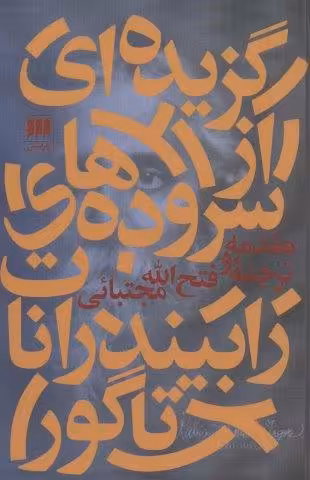 گزیده‌ای
از
سروده‌های
مقدمه و
ترجمه
فتح‌الله
مجتبائی
رابیندرانات
تاگور